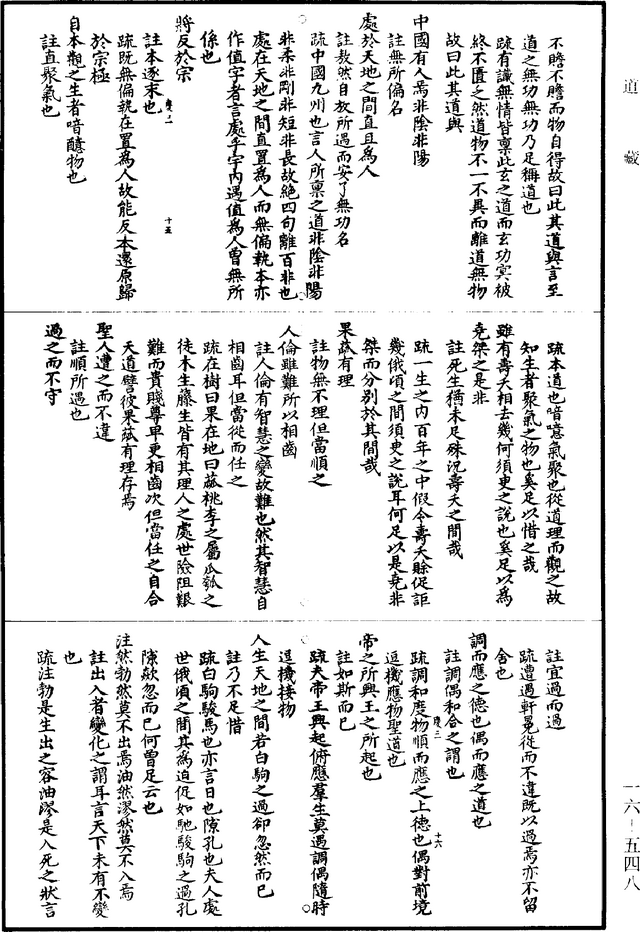 道藏
不贍不贍而物自得故曰此其道與言至
道之無功無功乃足稱道也
疏有識無情皆禀此玄之道而玄功冥被
終不匱乏然道物不一不異而離道無物
故曰此其道與
中國有人焉非陰非陽
註無所偏名
處於天地之間直且爲人
註敖然自放所遇而安了無功名
疏中國九州也言人所禀之道非陰非陽
非柔非剛非短非長故絶四句離百非也
處在天地之間直置爲人而無偏執本亦
作值字者言處乎宇內遇值爲人曾無所
係也
將反於宗
註本逐末也
疏既無偏執在置爲人故能反本還原歸
於宗極
自本觀之生者喑醷物也
註直聚氣也
十五
疏本道也喑噫氣聚也從道理而觀之故
知生者聚氣之物也奚足以惜之哉
雖有壽夭相去幾何須臾之說也奚足以爲
堯桀之是非
註死生猶未足殊況壽夭之間哉
疏一生之內百年之中假令壽夭賒促詎
幾俄頃之間須臾之說耳何足以是堯非
桀而分别於其間哉
果蓏有理
註物無不理但當順之
人倫雖難所以相齒
註人倫有智慧之變故難也然其智慧自
相齒耳但當從而任之
疏在樹曰果在地曰蓏桃李之屬瓜瓠之
徒木生藤生皆有其理人之處世險阻艱
難而貴賤尊卑更相齒次但當任之自合
天道譬彼果蓏有理存焉
聖人遭之而不違
註順所遇也
過之而不守
註宜過而過
疏遭遇軒冕從而不違既以過焉亦不留
舍也
調而應之德也偶而應之道也
註調偶和合之謂也
疏調和庶物順而應之上德也偶對前境
逗機應物聖道也
帝之所興王之所起也
註如斯而已
疏夫帝王興起俯應羣生莫過調偶隨時
逗機接物
人生天地之間若白駒之過卻忽然而已
註乃不足惜
疏白駒駿馬也亦言日也隙孔也夫人處
世俄頃之間其爲迫促如馳駿駒之過孔
隙歘忽而已何曾足云也
注然勃然莫不出焉油然漻然莫不入焉
註出入者變化之謂耳言天下未有不變
也
疏注勃是生出之容油漻是入死之狀言
十六
一六-五四八